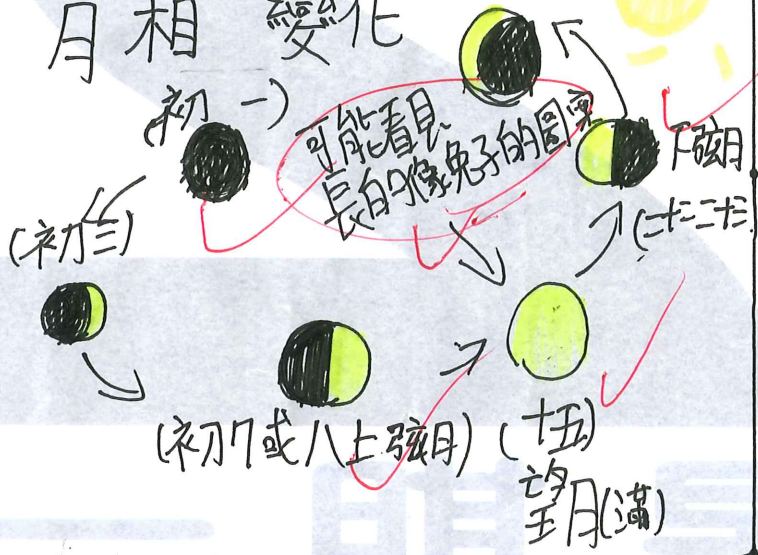 月相變化
(初一)
可能看見
長的像兔子的圖案
下弦月
(二十二二十三)
(初三)
(初7或八上弦月)
(十五)
望月(滿)